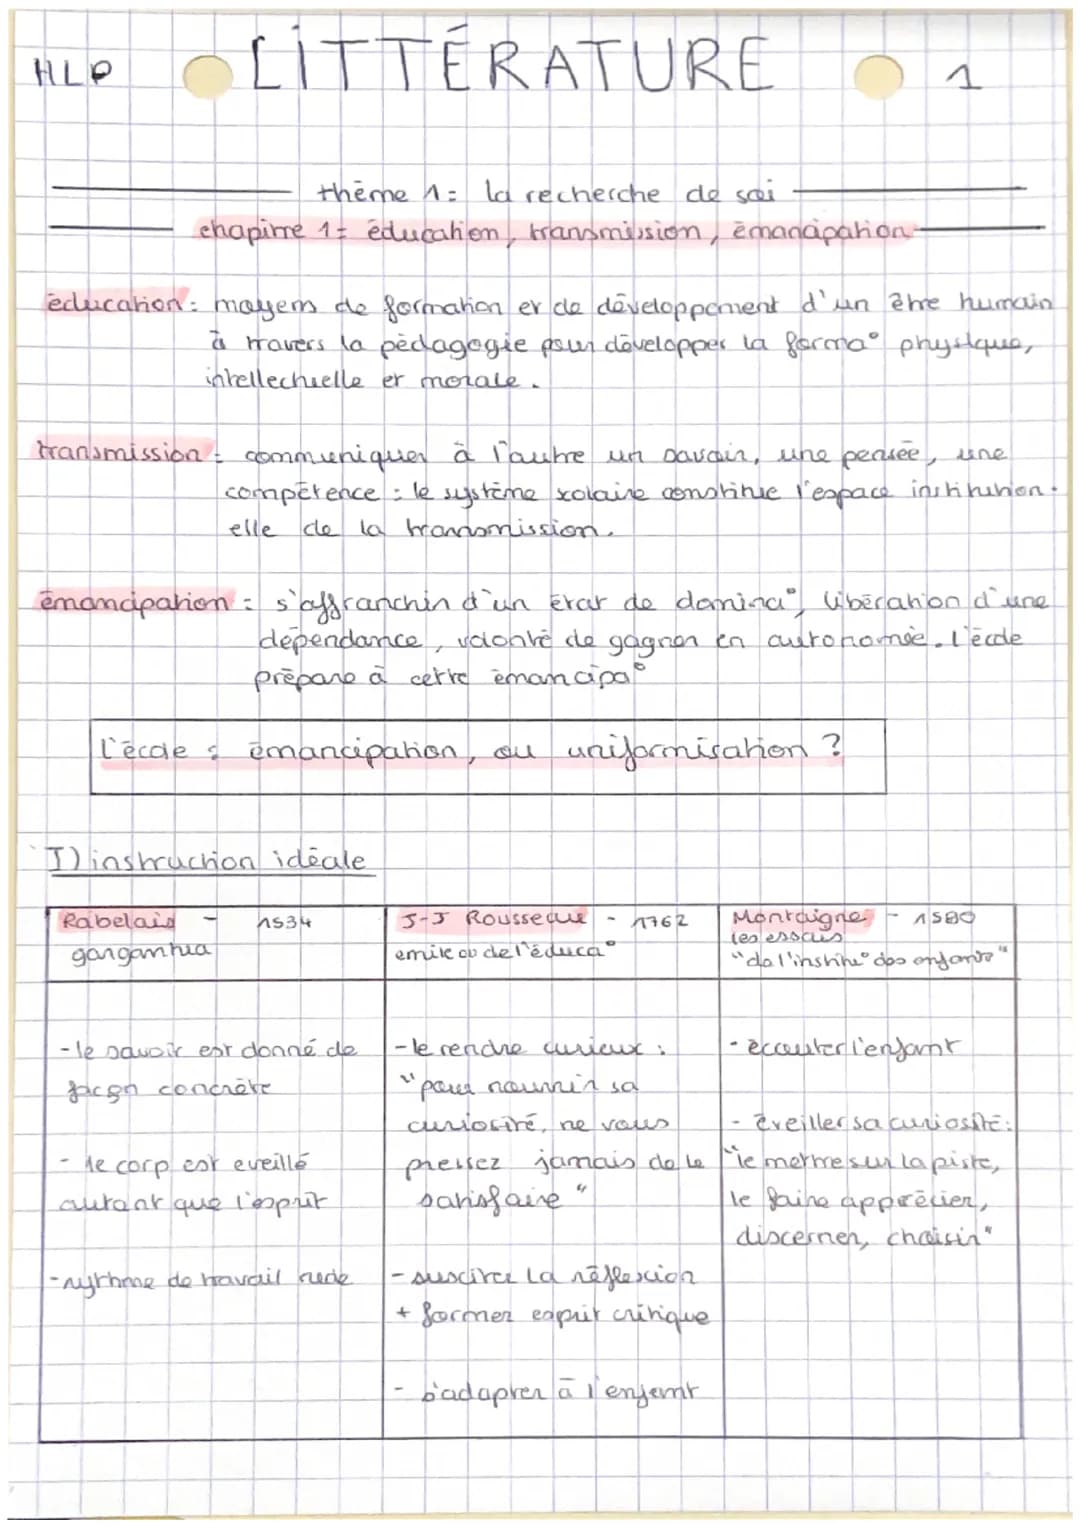 HLP LITTÉRATURE 1
thème 1 = la recherche de soi
chapitre 1 = éducation, transmission, émancipation
éducation : moyens de formation et de développement d'un être humain
à travers la pédagogie pour développer la forma° physique,
intellectuelle et morale.
transmission : communiquer à l'autre un savoir, une pensée, une
compétence : le système scolaire constitue l'espace institution-
elle de la transmission.
émancipation : s'affranchir d'un état de domina°, libération d'une
dépendance, volonté de gagner en autonomie. l'école
prépare à cette émancipa°
L'école : émancipation, ou uniformisation ?
I) instruction idéale
Rabelais - 1534
gargantua
J-J Rousseau - 1762
emile ou de l'éduca°
Montaigne - 1580
les essais
"de l'institu° des enfants"
- le savoir est donné de
façon concrète
- le corp est eveillé
autant que l'esprit
- rythme de travail rude
- le rendre curieux :
"pour nourrir sa
curiosité, ne vous
pressez jamais de la
satisfaire"
- susciter la réflexion
+ former esprit critique
- s'adapter à l'enfant
- écouter l'enfant
- éveiller sa curiosité :
"le mettre sur la piste,
le faire apprécier,
discerner, choisir"